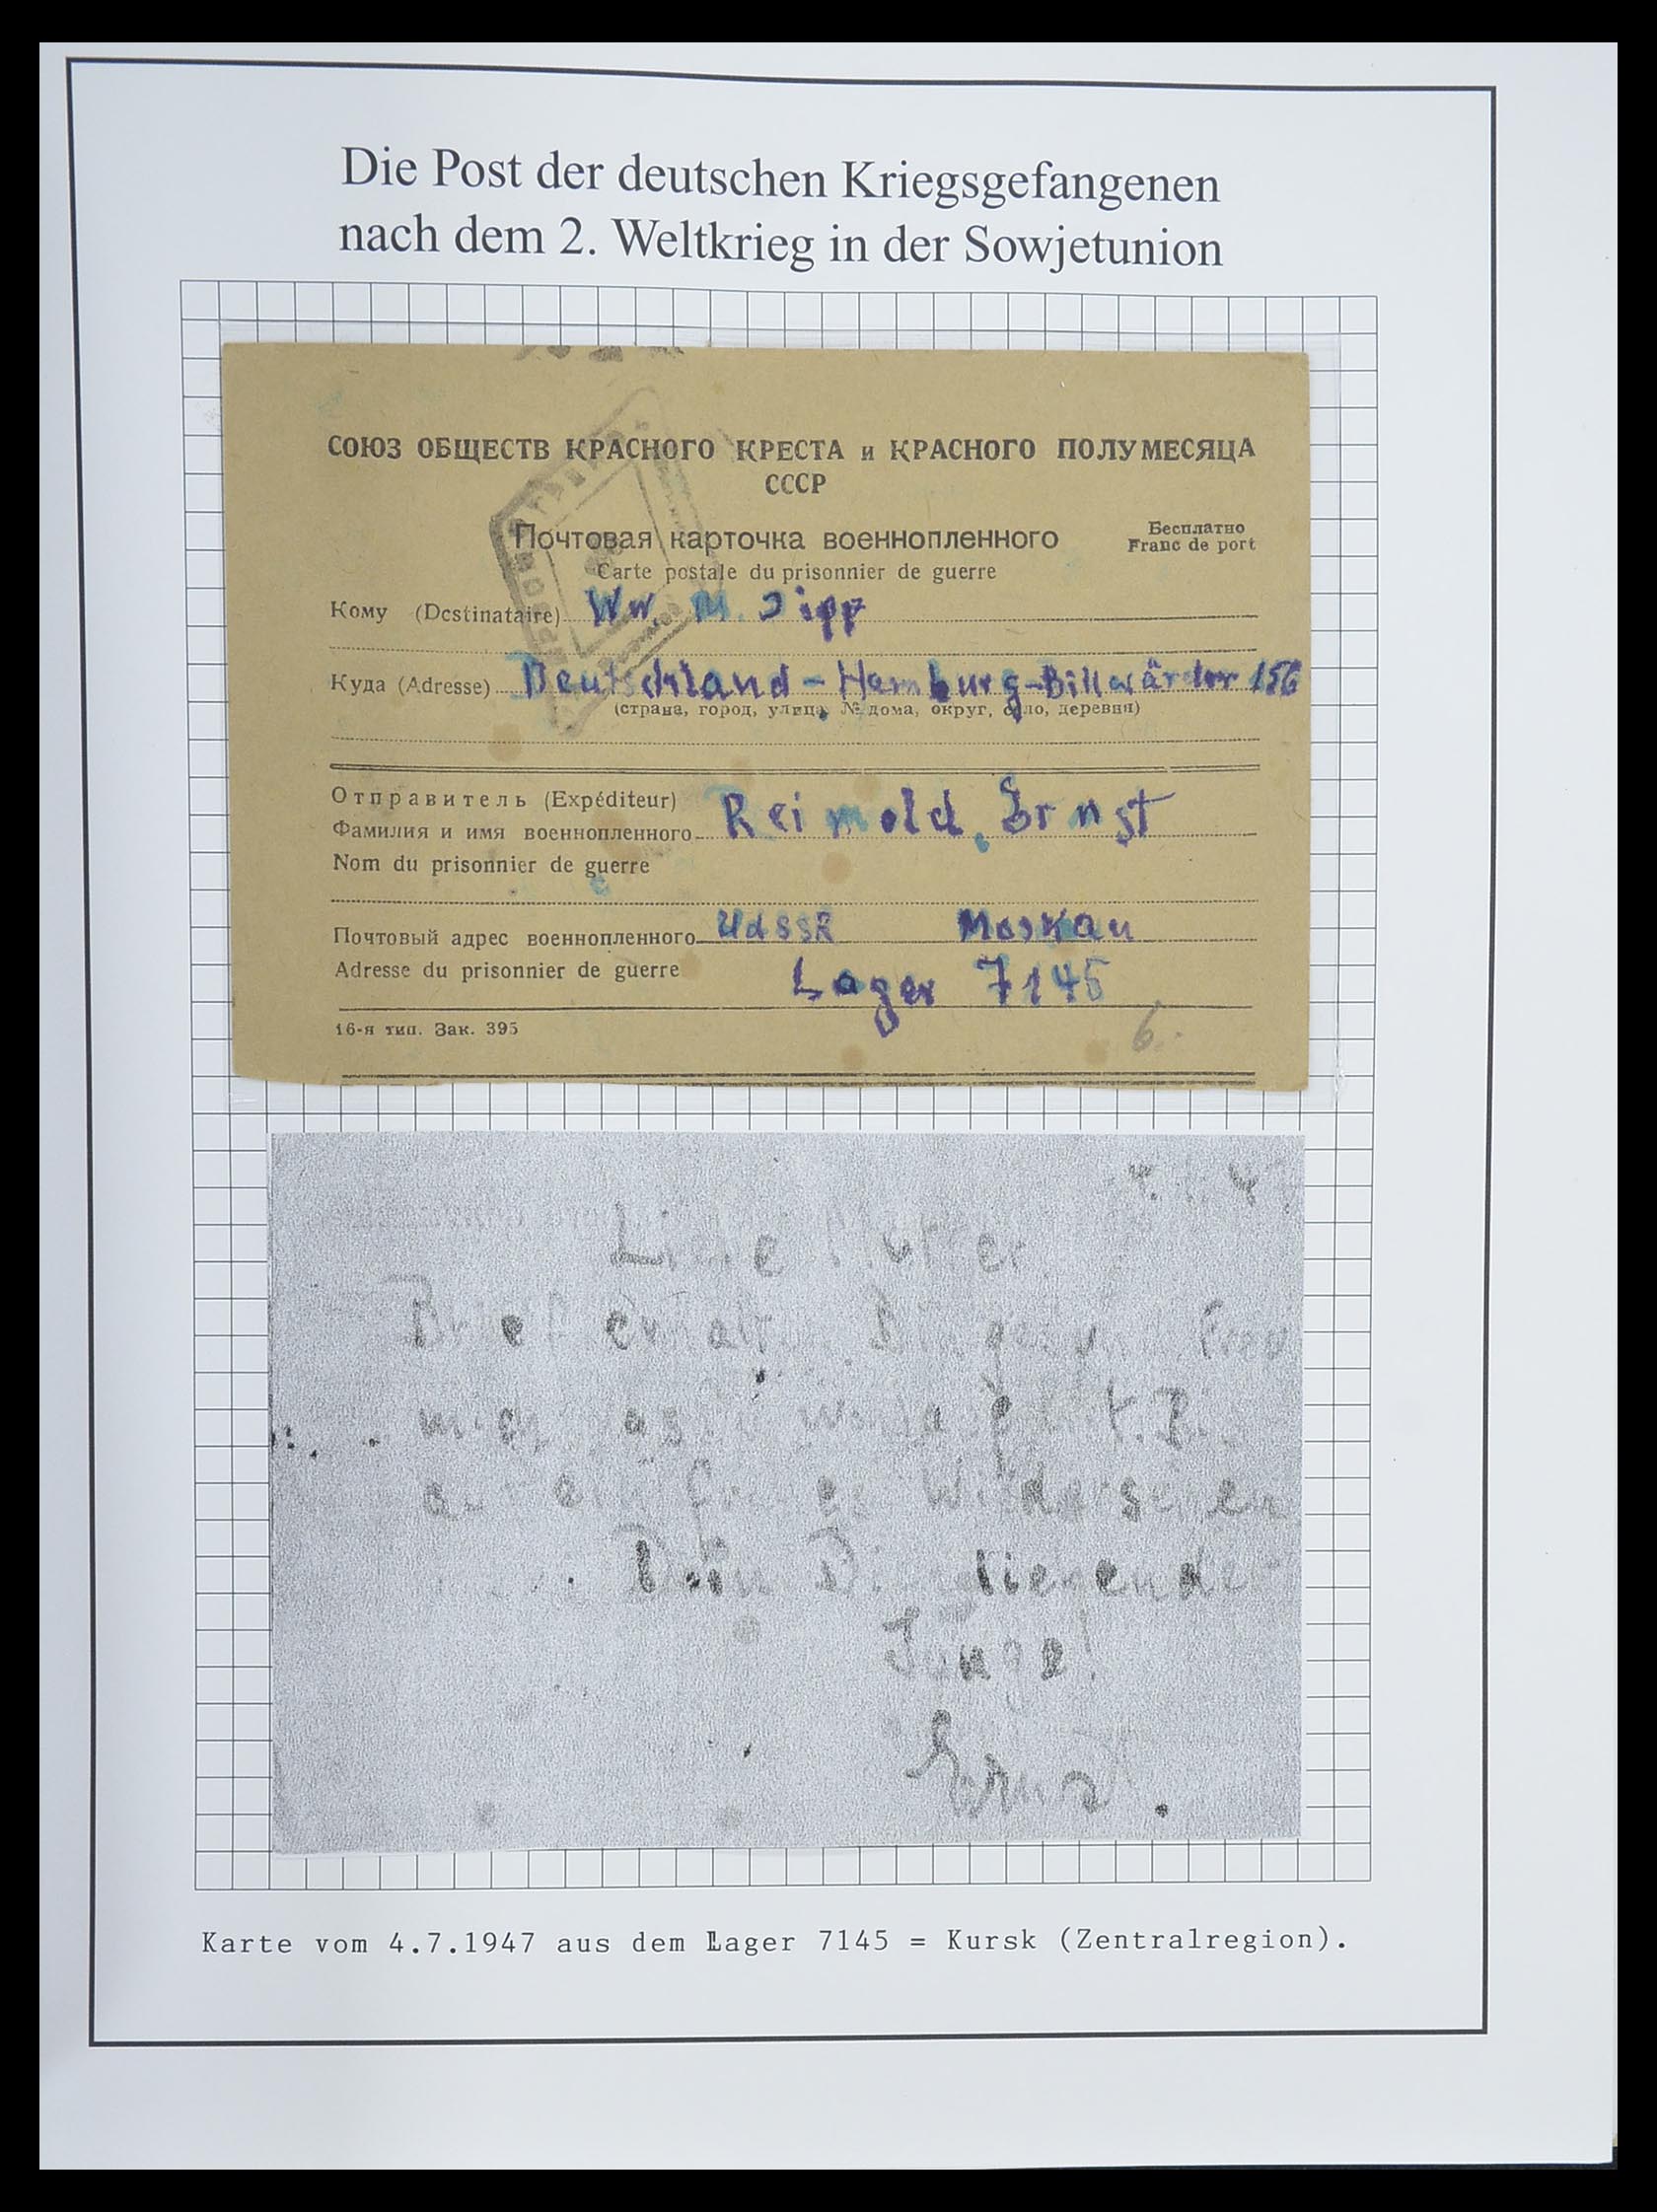 Die Post der deutschen Kriegsgefangenen
nach dem 2. Weltkrieg in der Sowjetunion
СОЮЗ ОБЩЕСТВ КРАСНОГО КРЕСТА и КРАСНОГО ПОЛУМЕСЯЦА
СССР
Почтовая карточка военнопленного
Бесплатно
Franc de port
Carte postale du prisonnier de guerre
Кому (Destinataire) Ww. M. Dipp
Куда (Adresse) Deutschland - Hamburg-Billwärder 156
(страна, город, улица, № дома, округ, село, деревня)
Отправитель (Expéditeur)
Фамилия и имя военнопленного Reimold, Ernst
Nom du prisonnier de guerre
Почтовый адрес военнопленного UdSSR Moskau
Adresse du prisonnier de guerre Lager 7145
16-я тип. Зак. 395
6.
Liebe Mutter
Brief erhalten. Bin gesund Freu
mich
auf ein Wiedersehen
Dein Dich liebender
Junge!
Ernst.
Karte vom 4.7.1947 aus dem Lager 7145 = Kursk (Zentralregion).